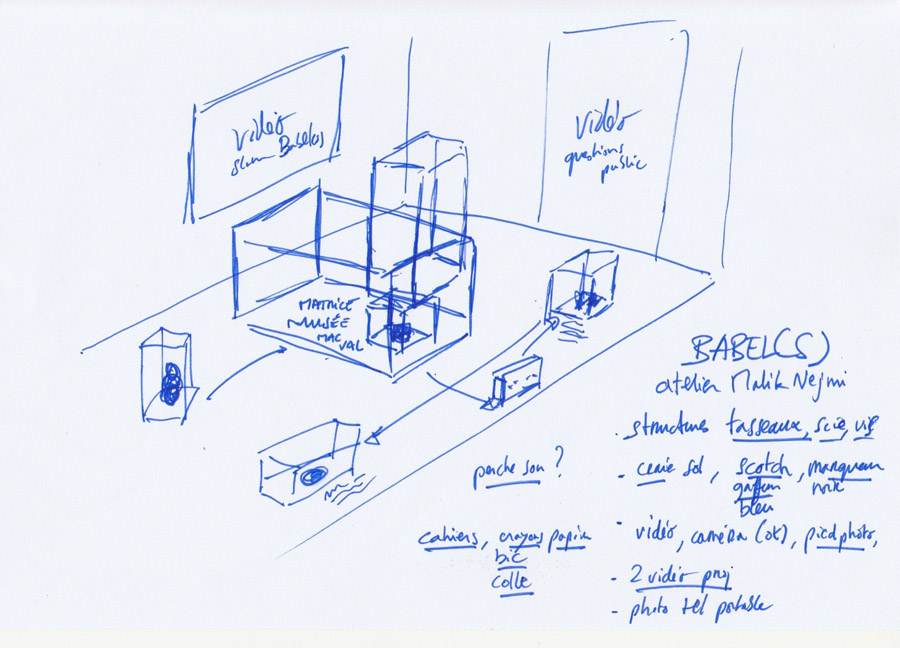 vidéo
slam Babel(s)
vidéo
questions
public
MATRICE
MUSÉE
MAC
VAL
BABEL(S)
atelier Malik Nejmi
. structures tasseaux, scie, vis
perche son ?
- craie sol, scotch, marqueur
gaffeur noir
bleu
cahiers, crayons papier
bic
colle
- vidéo, caméra (ok), pied photo,
- 2 vidéo proj
- photo tel portable